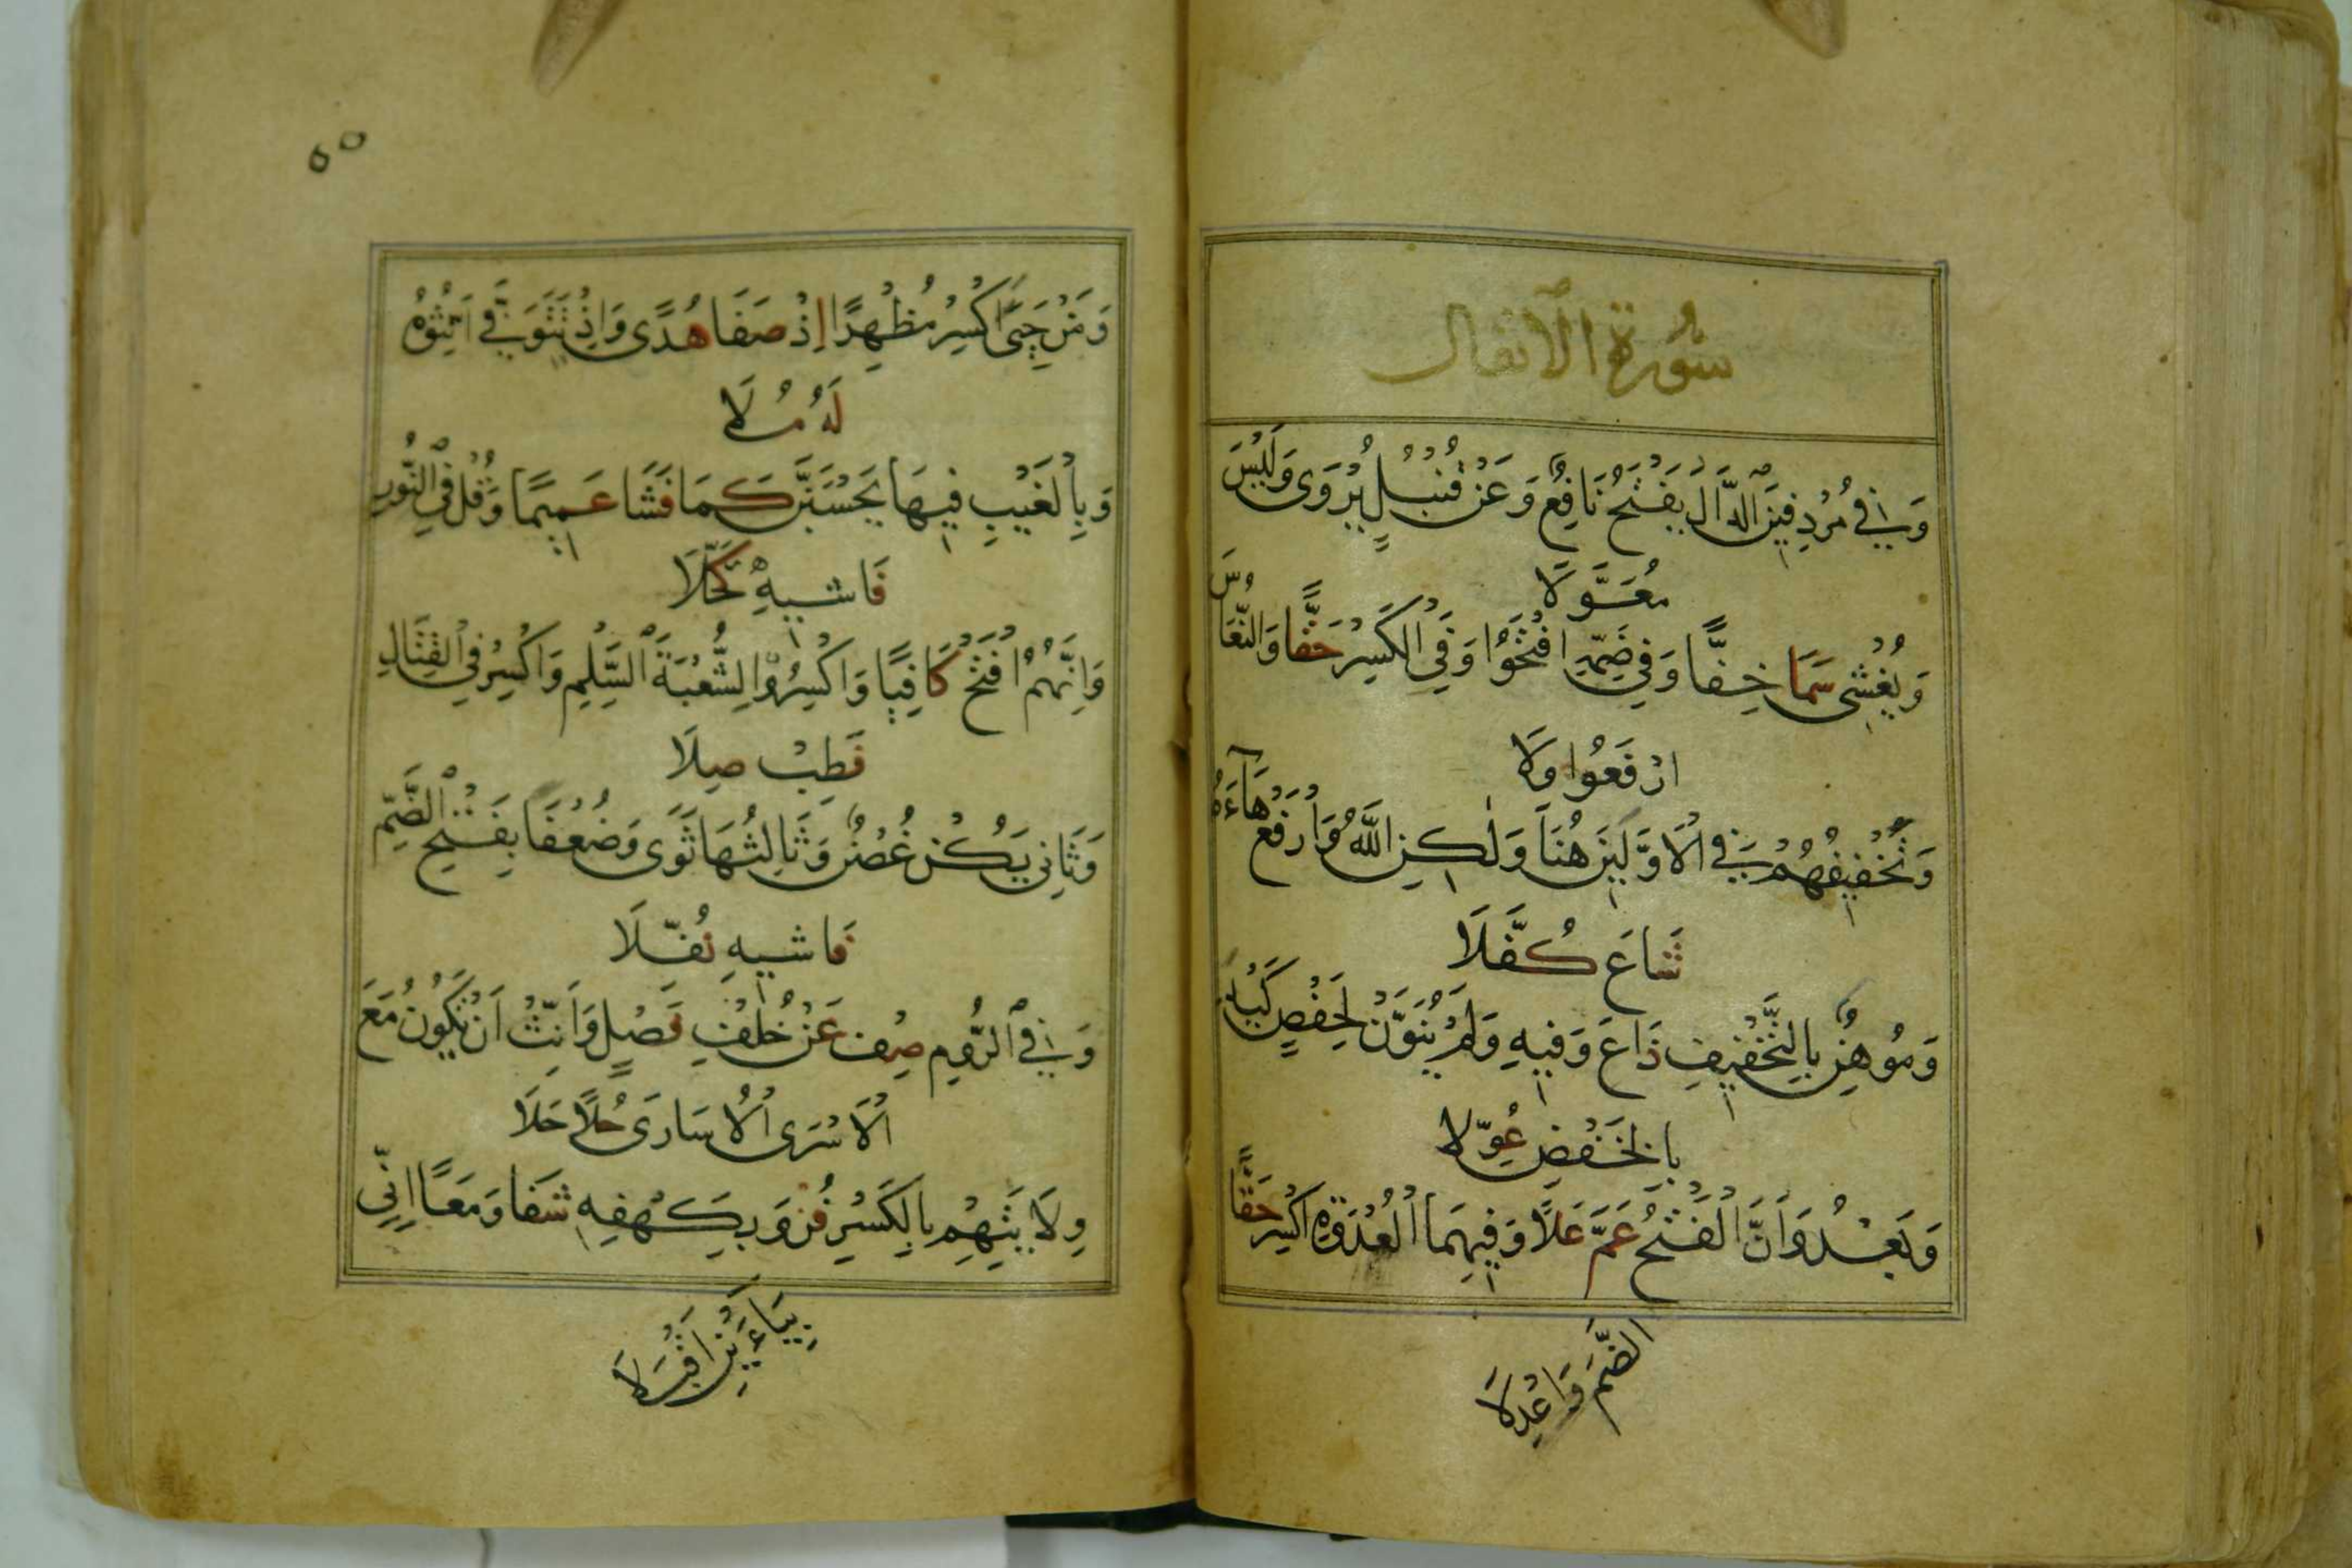 سُورَةُ الْاَنْفَال
وَفِي مُرْدِفِينَ الدَّالَ يَفْتَحُ نَافِعٌ وَعَنْ قُنْبُلٍ يُرْوَى وَلَيْسَ
مُعَوَّلَا
وَيُغْشِي سَمَا خِفًّا وَفِي ضَمِّهِ افْتَحُوا وَفِي الْكَسْرِ حَقًّا وَالنُّعَاسَ
ارْفَعُوا وَلَا
وَتَخْفِيفُهُمْ فِي الْاَوَّلَيْنِ هُنَا وَلٰكِنِ اللَّهُ وَارْفَعْ هَاءَهُ
شَاعَ كُفَّلَا
وَمُوهِنُ بِالتَّخْفِيفِ ذَاعَ وَفِيهِ وَلَمْ يُنَوَّنْ لِحَفْصٍ كَيْدَ
بِالْخَفْضِ عُوِّلَا
وَبَعْدُ وَاَنَّ الْفَتْحُ عَمَّ عَلًا وَفِيهِمَا الْعُدْوَةِ اكْسِرْ حَقًّا
الضَّمَّ وَاعْدِلَا
٥٥
وَمَنْ حَيِيَ اكْسِرْ مُظْهِرًا اِذْ صَفَا هُدًى وَاِذْ تَتَوَفَّى اَنِّثُوهُ
لَهُ مُلَا
وَبِالْغَيْبِ فِيهَا يَحْسَبَنَّ كَمَا فَشَا عَمِيمًا وَقُلْ فِي النُّورِ
فَاشِيهِ كَحَّلَا
وَاِنَّهُمُ افْتَحْ كَافِيًا وَاكْسِرُوا لِشُعْبَةَ السَّلْمِ وَاكْسِرْ فِي الْقِتَالِ
فَطِبْ صِلَا
وَثَانِي يَكُنْ غُصْنٌ وَثَالِثُهَا ثَوَى وَضُعْفًا بِفَتْحِ الضَّمِّ
فَاشِيهِ نُفِّلَا
وَفِي الرُّومِ صِفْ عَنْ خُلْفِ فَصْلٍ وَاَنِّثْ اَنْ تَكُونَ مَعَ
الْاَسْرَى الْاُسَارَى حُلًا حَلَا
وِلَايَتِهِمْ بِالْكَسْرِ فُزْ وَبِكَهْفِهِ شَفَا وَمَعًا اِنِّي
بِيَاءَيْنِ اَقْبَلَا